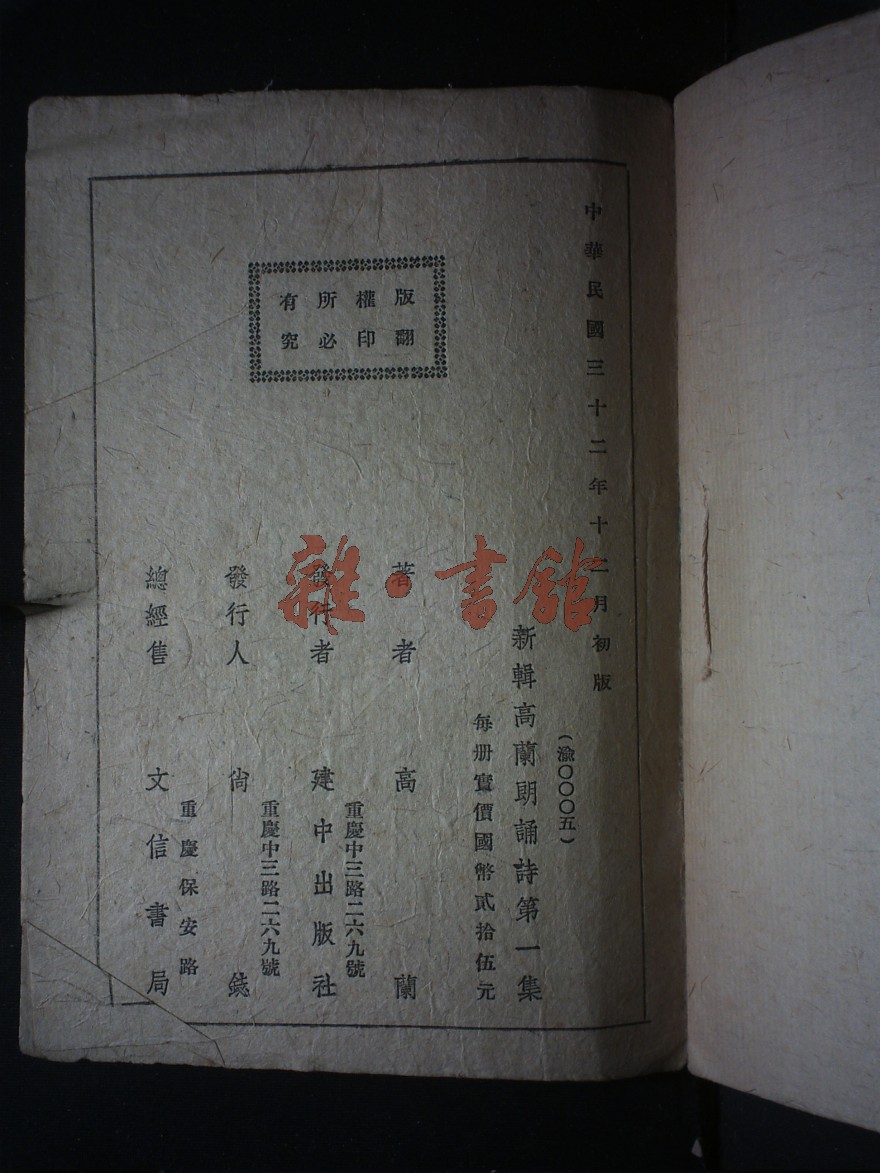 中華民國三十二年十一月初版
(渝〇〇〇五)
新輯高蘭朗誦詩第一集
每册實價國幣貳拾伍元
著者 高蘭
重慶中三路二六九號
發行者 建中出版社
重慶中三路二六九號
發行人 尙
重慶保安路
總經售 文信書局
版權所有
翻印必究
雜·書館